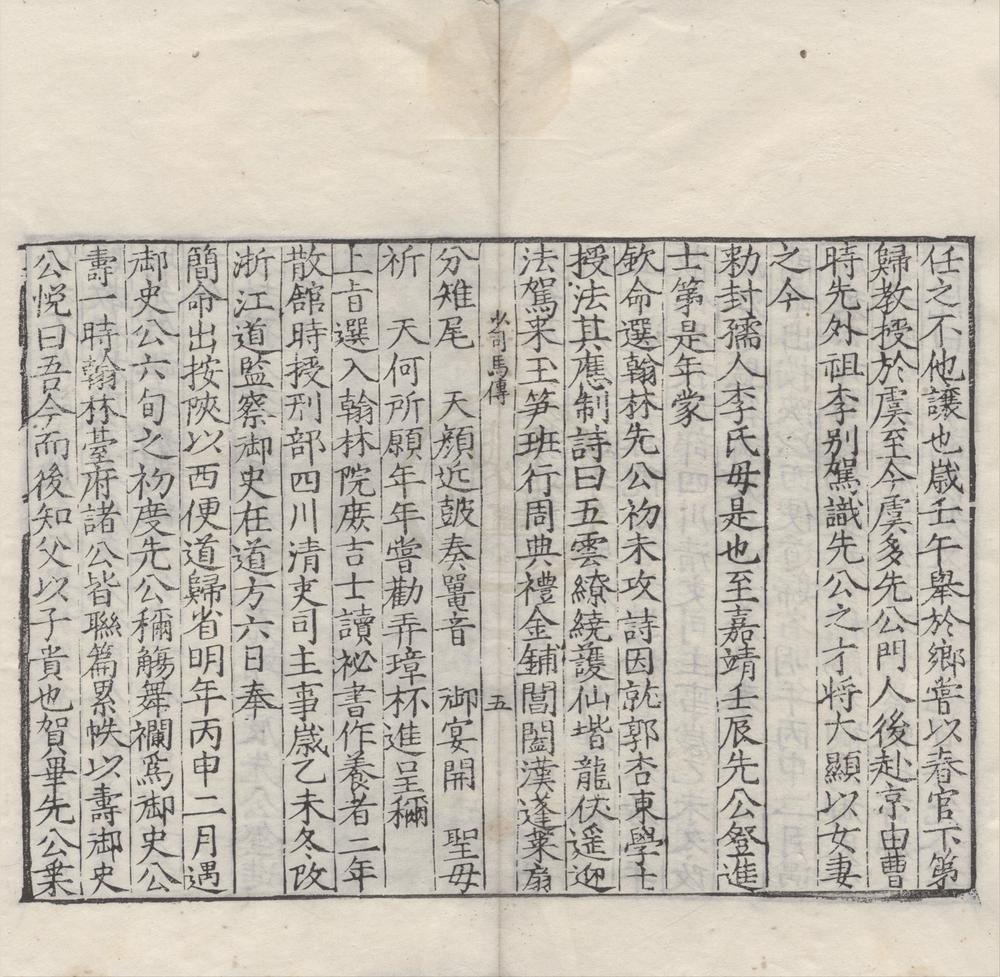 任之不他讓也歲壬午舉於鄉嘗以春官下第
歸教授於虞至今虞多先公門人後赴京由曹
時先外祖李别駕識先公之才將大顯以女妻
之今
勑封孺人李氏毋是也至嘉靖壬辰先公登進
士第是年蒙
欽命選翰林先公初未攻詩因就郭杏東學士
授法其應制詩曰五雲繚繞護仙堦龍伏遥迎
法駕来玉笋班行周典禮金鋪閶闔漢蓬萊扇
少司馬傳 五
分雉尾 天顔近皷奏鼍音 御宴開 聖毋
祈 天何所願年年嘗勸弄璋杯進呈稱
上旨選入翰林院庶吉士讀祕書作養者二年
散舘時授刑部四川清吏司主事歲乙未冬改
浙江道監察御史在道方六日奉
簡命出按陝以西便道歸省明年丙申二月遇
御史公六旬之初度先公稱觴舞襴爲御史公
壽一時翰林臺府諸公皆聯篇累帙以壽御史
公悦曰吾今而後知父以子貴也賀畢先公乗